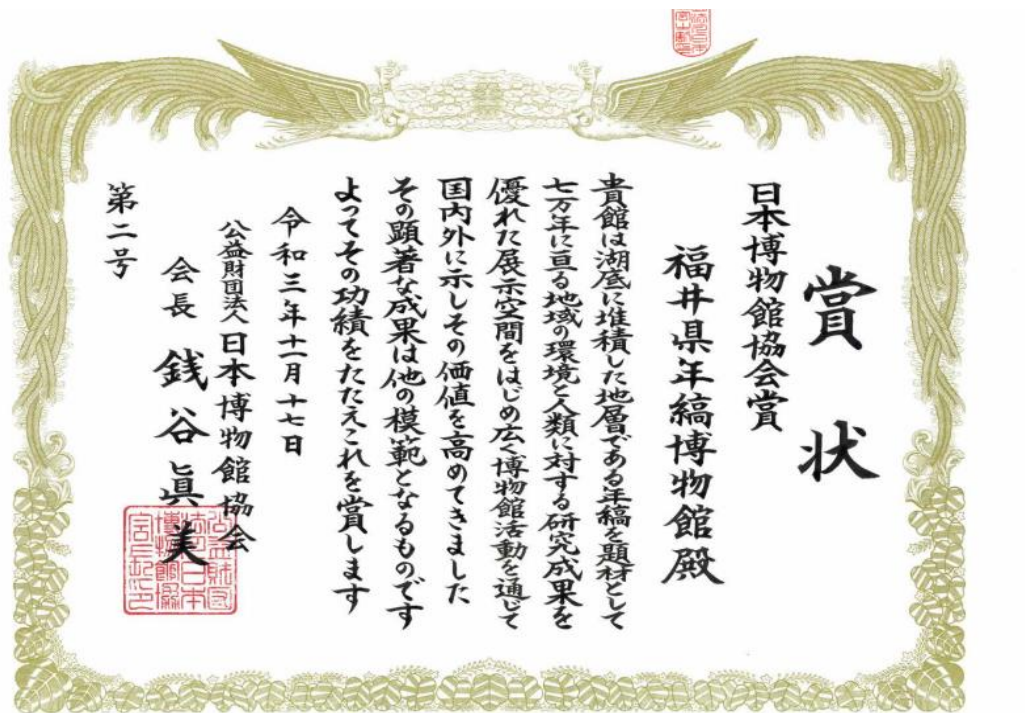 賞状
日本博物館協会賞
福井県年縞博物館殿
貴館は湖底に堆積した地層である年縞を題材として
七万年に亘る地域の環境と人類に対する研究成果を
優れた展示空間をはじめ広く博物館活動を通じて
国内外に示しその価値を高めてきました
その顕著な成果は他の模範となるものです
よってその功績をたたえこれを賞します
令和三年十一月十七日
公益財団法人日本博物館協会
会長 銭谷眞美
第二号